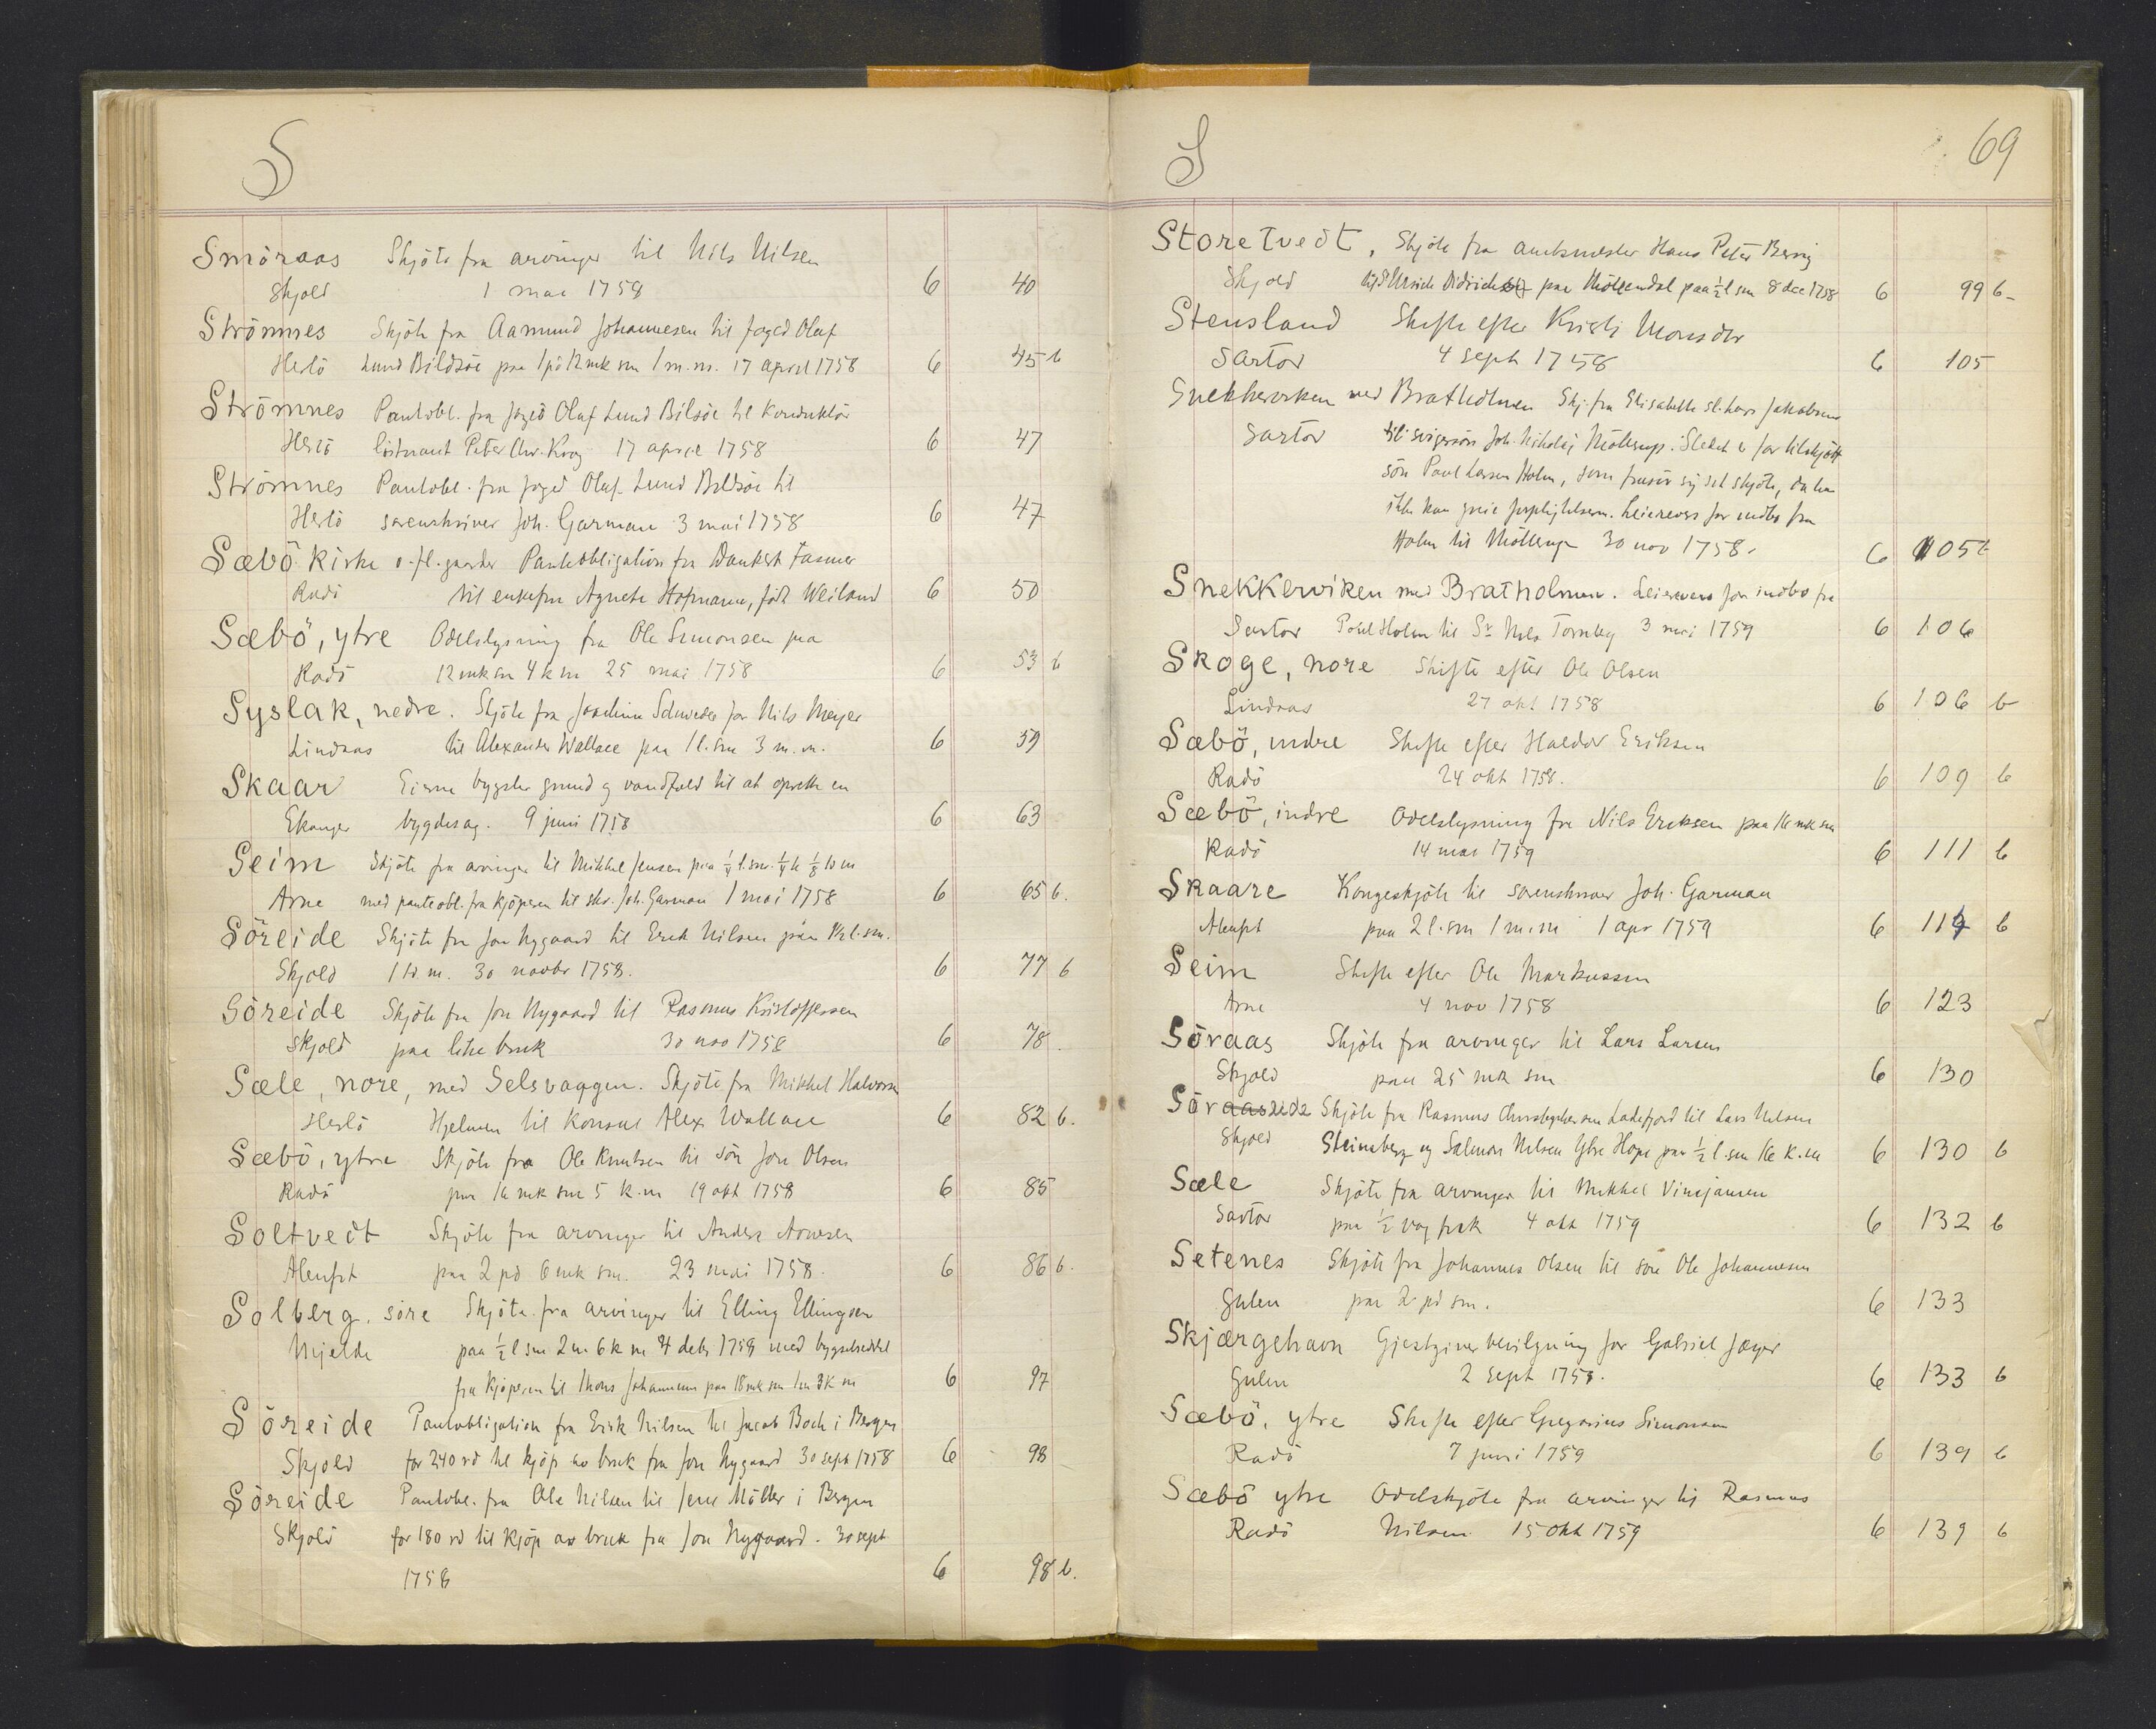 S
Smöraas Skjöte fra arvinger til Nils Nilsen
Skjold 1 mai 1758 6 40
Strömnes Skjöte fra Aamund Johannesen til foged Olaf
Herlö Lund Bildsöe paa 1 pd 12 mk sm 1 m. m. 17 april 1758 6 45 b
Strömnes Pantobl. fra foged Olaf Lund Bilsöe til konduktör
Herlö löitnant Peter Chr. Krog 17 april 1758 6 47
Strömnes Pantobl. fra foged Olaf Lund Bildsöe til
Herlö sorenskriver Joh. Garman 3 mai 1758 6 47
Sæbö kirke o. fl. garder Panteobligation fra Dankert Fasmer
Radö til enkefru Agneta Hofmann, född Weiland 6 50
Sæbö, ytre Odelslysning fra Ole Simonsen paa
Radö 12 mk sm 4 k m 25 mai 1758 6 53 b
Syslak, nedre. Skjöte fra Joachim Schweder for Nils Meyer
Lindaas til Alexander Wallace paa 1 l. sm 3 m. m. 6 59
Skaar Eierne bygsler grund og vandfald til at oprette en
Ekanger bygdesag. 9 juni 1758 6 63
Seim Skjöte fra arvinger til Mikkel Jensen paa ¼ l. sm. ¼ h ⅛ td m
Arne med panteobl. fra kjöperen til skr. Joh. Garman 1 mai 1758 6 65 b.
Söreide Skjöte fra Jon Nygaard til Erik Nilsen paa ½ l. sm.
Skjold 1 td m. 30 novbr 1758. 6 77 b
Söreide Skjöte fra Jon Nygaard til Rasmus Kristoffersen
Skjold paa litre bruk 30 nov 1758 6 78.
Sæle, nore, med Selsvaagen. Skjöte fra Mikkel Halvorsen
Herlö Hjelmen til konsul Alex Wallace 6 82 b.
Sæbö, ytre Skjöte fra Ole Knutsen til sön Jon Olsen
Radö paa 16 mk sm 5 k. m 19 okt 1758 6 85
Soltvedt Skjöte fra arvinger til Anders Arnesen
Alenfit paa 2 pd 6 mk sm. 23 mai 1758. 6 86 b.
Solberg, söre Skjöte fra arvinger til Elling Ellingsen
Mjelde paa ½ l sm 2 m 6 k m 4 debr 1758 med bygselseddel
fra kjöperen til Mons Johannesen paa 18 mk sm 1 m 3 k m 6 97
Söreide Pantobligation fra Erik Nilsen til Jacob Bock i Bergen
Skjold for 240 rd til kjöp av bruk fra Jon Nygaard 30 sept 1758 6 98
Söreide Pantobl. fra Ole Nilsen til Jens Möller i Bergen
Skjold for 180 rd til kjöp av bruk fra Jon Nygaard. 30 sept
1758 6 98 b.
S 69
Storetvedt, Skjöte fra amtsmester Hans Peter
Skjold til Ulrich Didrich paa Möllendal paa ½ l sm 8 dec 1758 6 99 b
Stensland Skifte efter Kristi Monsdtr
Sartor 4 sept 1758 6 105
Snekkerviken med Bratholmen Skj. fra Elisabeth sl. Lars Jakobsens
Sartor til svigersön Joh. Nikolai Möllerup. Stedet er för tilskjött
sön Paul Larsen Holm, som frasiv sig sit skjöte, da han
ikke kan greie forpligtelsern. Leierevers for indbo fra
Holm til Möllerup 30 nov 1758. 6 105 b
Snekkerviken med Bratholmen. Leierevers for indbo fra
Sartor Poul Holm til Sr Nels Tornbg 3 mai 1759 6 106
Skoge, nore Skifte efter Ole Olsen
Lindaas 27 okt 1758 6 106 b
Sæbö, indre Skifte efter Haldor Eriksen
Radö 24 okt 1758. 6 109 b
Sæbö, indre Odelslysning fra Nils Eriksen paa 16 mk sm
Radö 14 mai 1759 6 111 b
Skaare Kongeskjöte til sorenskriver Joh. Garman
Alenfit paa 2 l. sm 1 m. m 1 apr 1759 6 119 b
Seim Skifte efter Ole Markussen
Arne 4 nov 1758 6 123
Söraas Skjöte fra arvinger til Lars Larsen
Skjold paa 25 mk sm 6 130
Söraaseide Skjöte fra Rasmus Christophersen Ladefjord til Lars Nelsen
Skjold Steinsberg og Salmon Nelsen Ytre Hope paa ½ l. sm 16 k. m 6 130 b
Sæle Skjöte fra arvinger til Mikkel Vinsjansen
Sartor paa ½ vog fisk 4 okt 1759 6 132 b
Setenes Skjöte fra Johannes Olsen til sön Ole Johannesen
Gulen paa 2 pd sm. 6 133
Skjærgehavn Gjestgiverbevilgning for Gabriel Jæger
Gulen 2 sept 1758. 6 133 b
Sæbö, ytre Skifte efter Gregorius Simonsen
Radö 7 juni 1759 6 139 b
Sæbö ytre Odelskjöte fra arvinger til Rasmus
Radö Nilsen 15 okt 1759 6 139 b